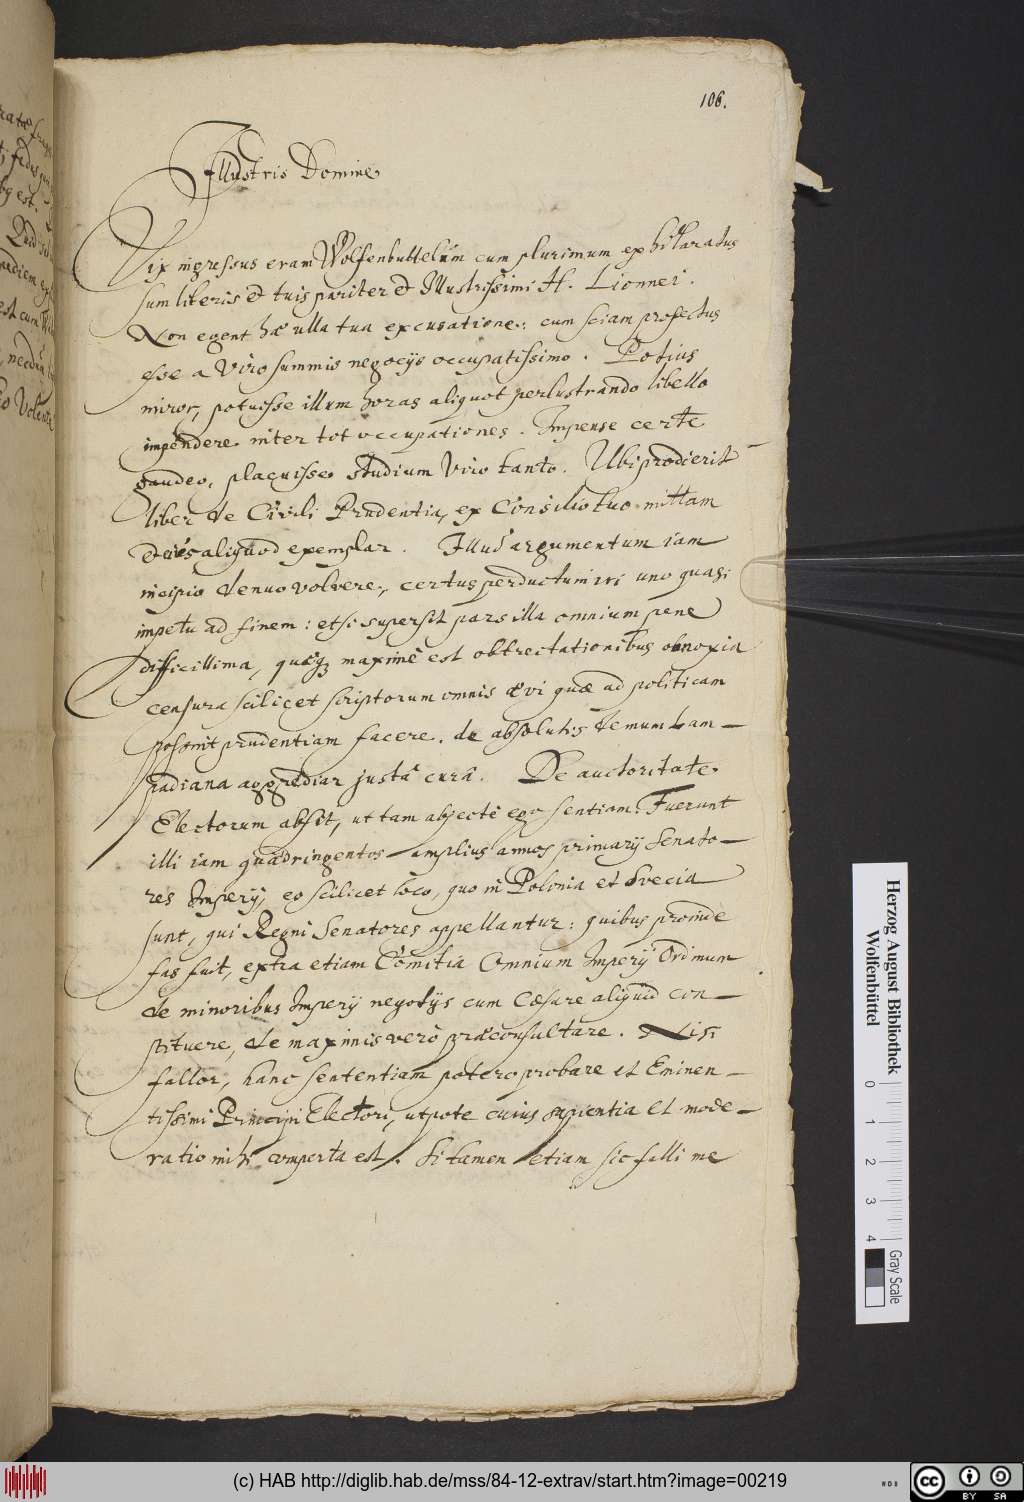 106.
Illustris Domine
Vix ingressus eram Wolfenbuttelum cum plurimum exhilaratus
sum literis et tuis pariter et Illustrissimi H. Lionnei.
Non egent hæ ulla tua excusatione: cum sciam profectus
esse a viro summis negocijs occupatissimo. Potius
miror, potuisse illum horas aliquot perlustrando libello
impendere inter tot occupationes. Impense certe
gaudeo, placuisse studium viro tanto. Ubi prodierit
liber de Civili Prudentia, ex Consilio tuo mittam
et eius aliquod exemplar. Illud argumentum iam
incipio denuo volvere, certus perductum iri uno quasi
impetu ad finem: etsi supersit pars illa omnium pene
difficillima, quæq3 maxime est obtrectationibus obnoxia
censura scilicet scriptorum omnis ævi quæ ad politicam
possint prudentiam facere. de absolutis demum Lam-
padiana aggrediar justâ curâ. De auctoritate
Electorum absit, ut tam abjecte ego sentiam. Fuerunt
illi iam quadringentos amplius annos primarij Senato-
res Imperij, eo scilicet loco, quo in Polonia et Svecia
sunt, qui Regni Senatores appellantur: quibus proinde
fas fuit, extra etiam Comitia Omnium Imperij Ordinum
de minoribus Imperij negotijs cum Cæsare aliquid con-
stituere, de maximis verò præconsultare. Nisi
fallor, hanc sententiam potero probare et Eminen-
tissimi Principi Electori, utpote cuius sapientia et mode-
ratio mihi comperta est. Si tamen etiam sic falli me
Herzog August Bibliothek
Wolfenbüttel
0 1 2 3 4
Gray Scale
(c) HAB http://diglib.hab.de/mss/84-12-extrav/start.htm?image=00219
cc BY SA